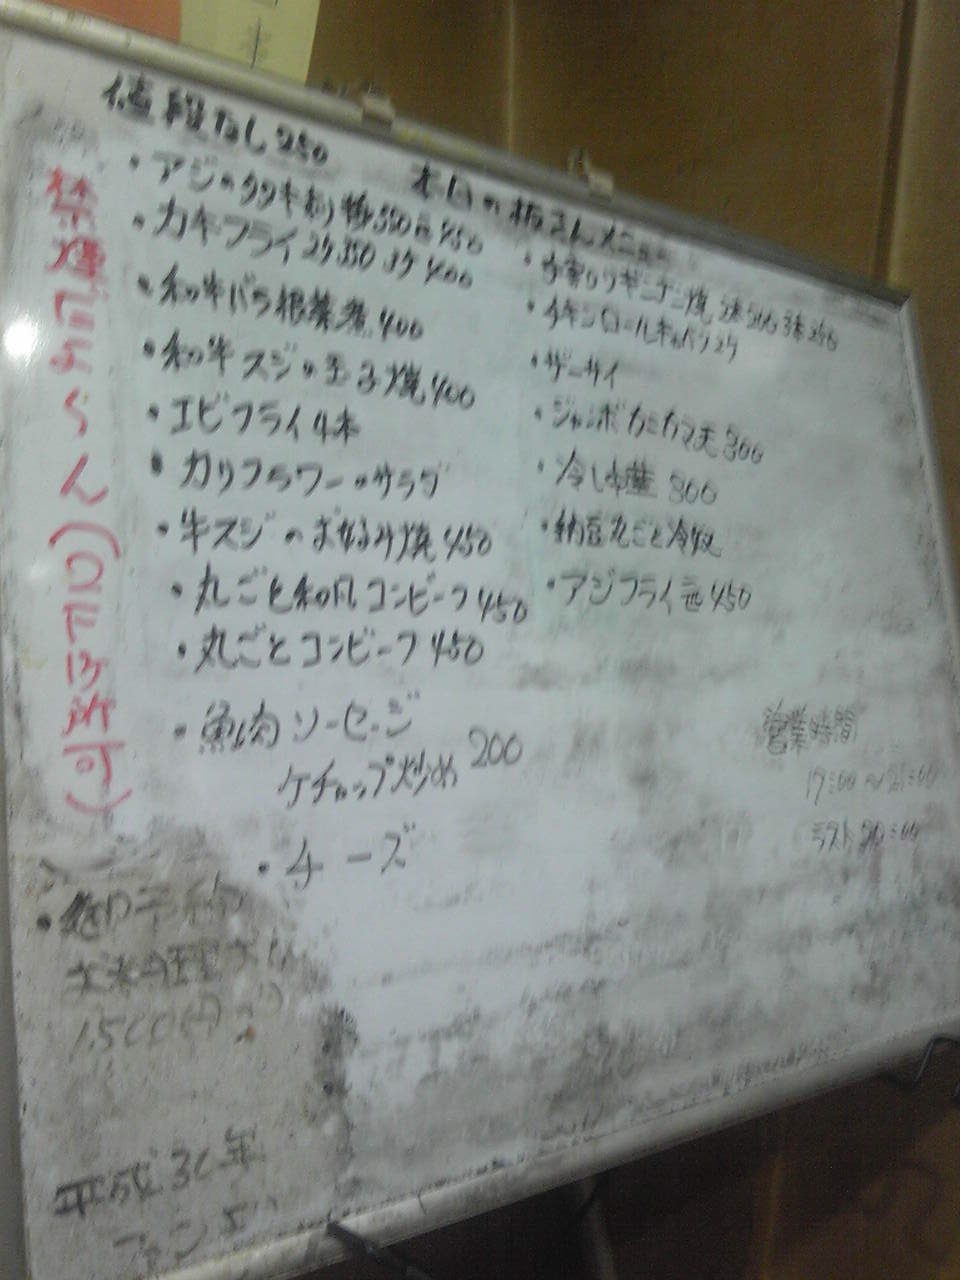 値段なし250
本日の板さんメニュー
禁煙にあらん(口に1ケ所可)
・アジのタタキ 350 450
・カキフライ2ケ350 3ケ400
・和牛バラ根菜煮400
・和牛スジの玉子焼400
・エビフライ4本
・カリフラワーのサラダ
・牛スジのお好み焼450
・丸ごと和風コンビーフ450
・丸ごとコンビーフ450
・魚肉ソーセージ
ケチャップ炒め 200
・チーズ
・手割りウギンナン焼 2本200 3本250
・チキンロールキャベツ2ケ
・ザーサイ
・ジャンボカニカマ天300
・冷し 300
・納豆丸ごと冷奴
・アジフライ 450
営業時間
17:00〜21:00
ラスト20:00
1,500円
平成30年